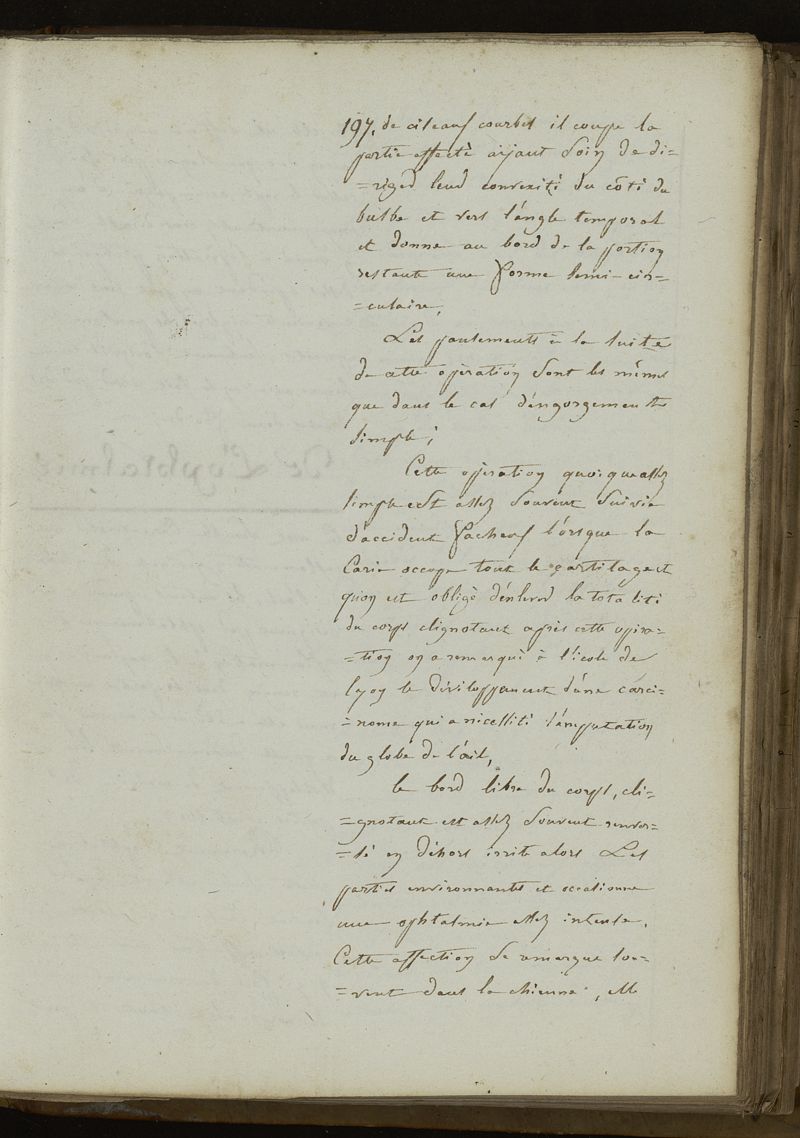 197. de ciseaux courbes il coupe la
partie affectè aÿant soin de di-
=riger leur convexité du côté du
bulbe et vers l'angle temporal
et donne au bord de la portion
restante une forme semi-cir=
=culaire,
Les pansements à la suite
de cette opèration sont les mêmes
que dans le cas d'engorgements
simple;
Cette opèration quoique assez
simple est assez souvent suivie
d'accident facheux l'orsque la
Carie occupe tout le cartilage et
qu'on est obligé d'enlever la totalité
du corps clignotant après cette opèra=
=tion on a remarqué à l'école de
lyon le dèveloppement d'une carci=
=nome qui a nécessité l'amputation
du globe de l'œil,
le bord libre du corps, cli=
=gnotant est assez souvent renver=
=sé en déhors irrite alors Les
parties environnantes et occasionne
une ophtalmie assez intense.
Cette affection se remarque sou=
=vent dans la chienne, M
De L'ophtalmie